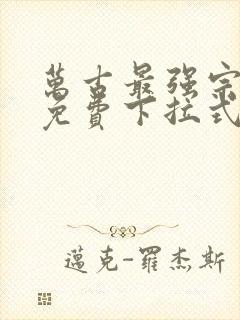 萬古最强宗
免費下拉式
邁克-羅杰斯